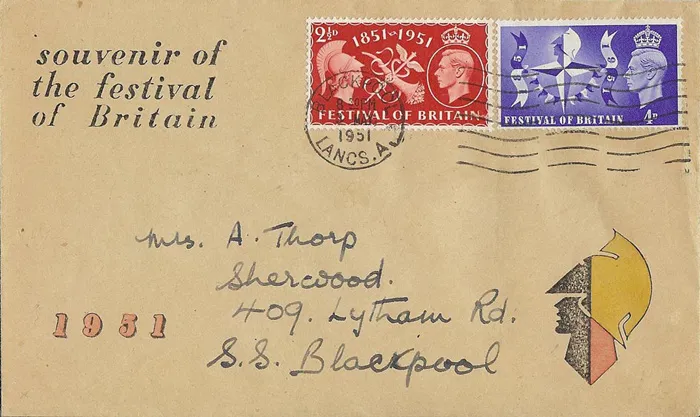 souvenir of
the festival
of Britain
2½D
1851-1951
FESTIVAL OF BRITAIN
1851
1951
FESTIVAL OF BRITAIN 4D
1951
LANCS. A
Mrs. A. Thorp
Sherwood.
409. Lytham Rd.
S.S. Blackpool
1951